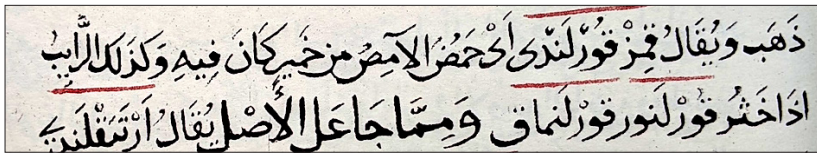 ذَهَب وَيُقَالُ قِمِزْ قُورْلَنْدى اَىْ حَمُضَ الآمِصُ مِنْ خَمِيرٍ كَانَ فِيهِ وَكَذَلِكَ الرَّايِبُ
اذَا خَثُرَ قورْلَنور قورْلَنماق وَمِمَّا جَا عَلَى الأَصْلِ يُقَالُ اَرْتَقْلَنْدى